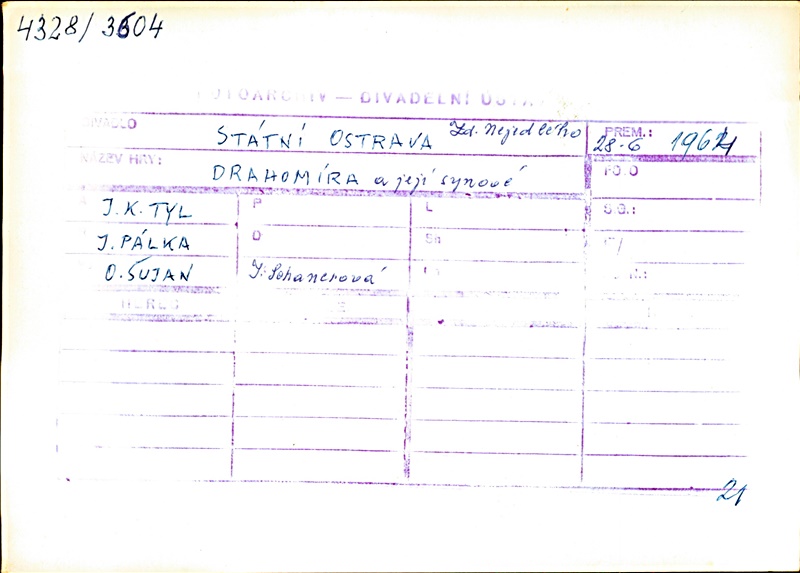 4328/3604
FOTOARCHIV — DIVADELNÍ ÚSTAV
DIVADLO STÁTNÍ OSTRAVA Zd. Nejedlého PREM.: 28-6 1961
NÁZEV HRY: DRAHOMÍRA a její synové FOTO
A J.K. TYL P L S.G.:
J. PÁLKA O Sn
O. ŠUJAN
HEREC
21